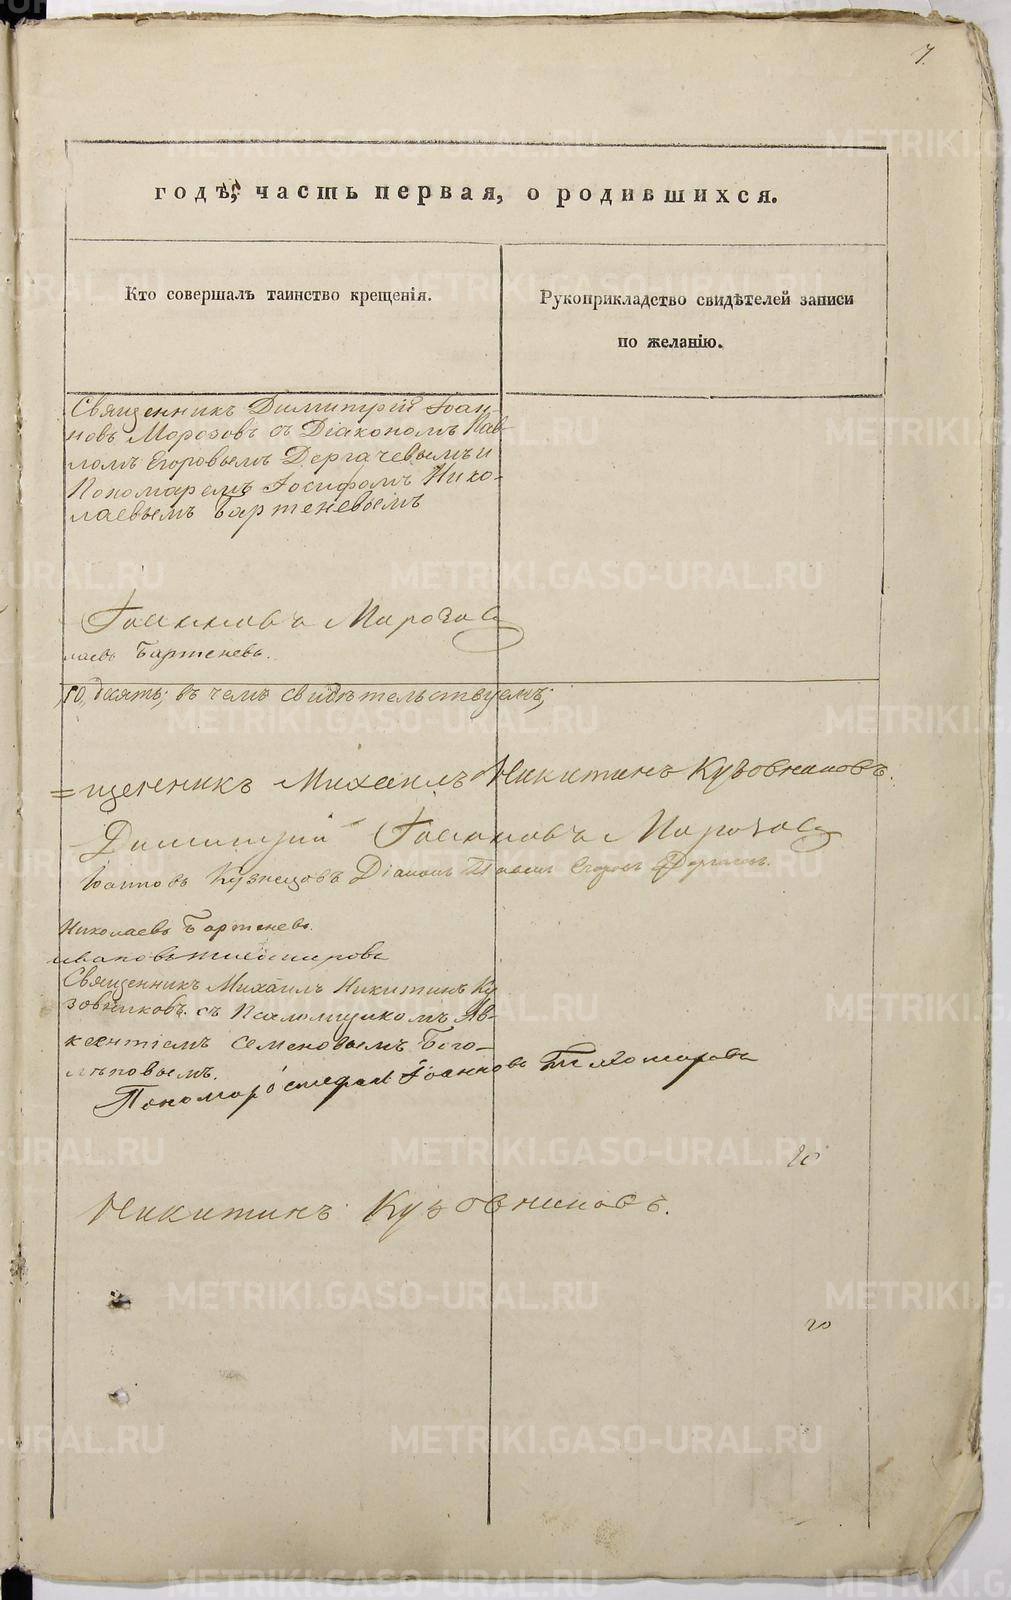 7.
годѣ, часть первая, о родившихся.
Кто совершалъ таинство крещенія.
Рукоприкладство свидѣтелей записи
по желанію.
Священникъ Димитрій Іоан-
новъ Морозовъ съ Діакономъ Пав-
ломъ Егоровымъ Дергачевымъ и
Пономаремъ Іосифомъ Нико-
лаевымъ Бартеневымъ
Іоанновъ Морозовъ
лаевъ Бартеневъ.
10, десять; въ чемъ свидѣтельствуемъ;
=щенникъ Михаилъ Никитинъ Кузовниковъ.
Димитрій Іоанновъ Морозовъ
Іоанновъ Кузнецовъ Діаконъ Павелъ Егоровъ
Николаевъ Бартеневъ.
ивановъ тихомировъ
Священникъ Михаилъ Никитинъ Ку
зовниковъ съ Псаломщикомъ Ав-
ксентіемъ Семеновымъ Бого-
лѣповымъ.
Пономарь Іоанновъ Тихомировъ
20
Никитинъ Кузовниковъ.
20
METRIKI.GASO-URAL.RU